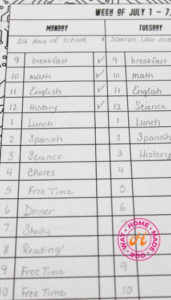 WEEK OF JULY 1 - 7,
MONDAY TUESDAY
1st day of school Science Lab
9 breakfast ✓ 9 breakfast
10 math ✓ 10 math
11 English ✓ 11 English
12 History ✓ 12 Science
1 Lunch 1 Lunch
2 Spanish 2 Spanish
3 Science 3 History
4 Chores 4
5 Free Time 5
6 Dinner 6
7 Study
8 Reading
9 Free Time 9
10 Free Time 10
OUR WAY HOME MADE